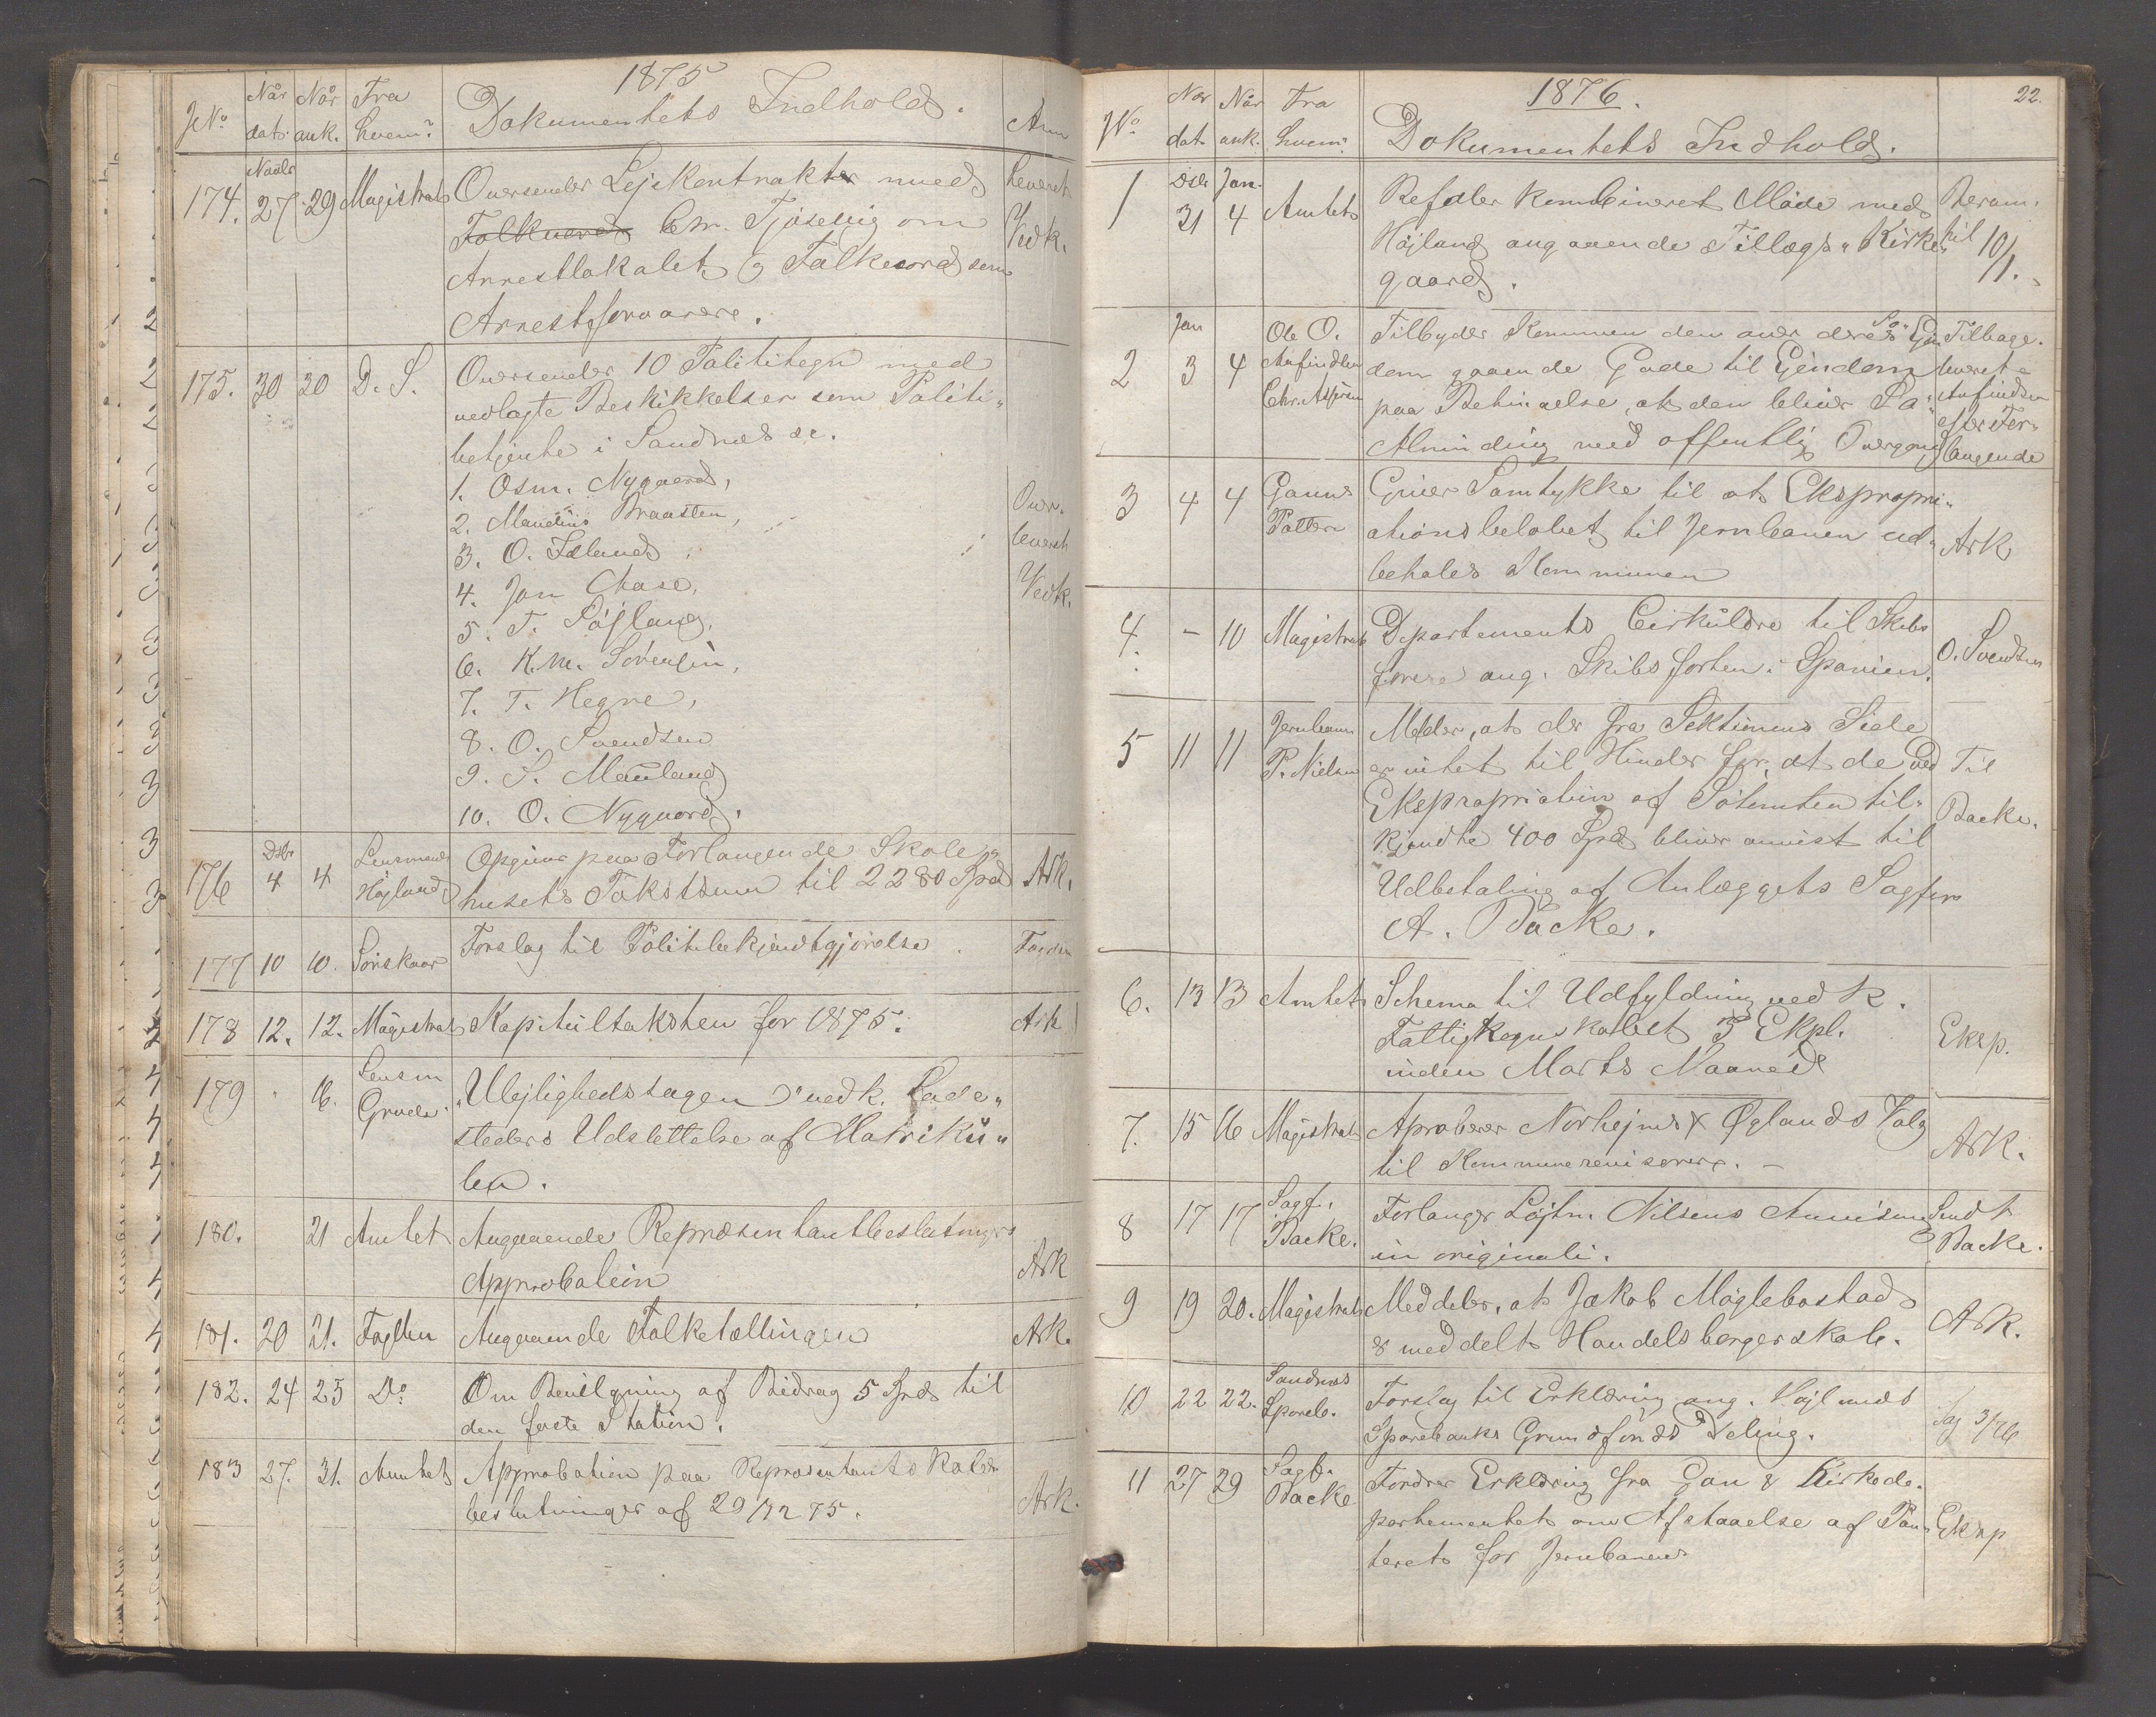 1875
No
Når dat.
Når ank.
Fra hvem?
Dokumentets Indhold.
Anm
174.
Novbr 27
29
Magistrat
Oversender Lejekontrakter med
Folkvord Chr. Tjösevig om
Arrestlokalet og Folkvord som
Arrestforvarere.
Leveret
Vedk.
175.
30
30
D. S.
Oversender 10 Politi­tegn med
vedlagte Beskikkelser som Politi-
betjente i Sandnæs se.
1. Osm. Nygaard,
2. Maudius Braasten,
3. O. Fæland,
4. Jon Chase,
5. T. Höjland,
6. K. M. Sörensen,
7. T. Hegre,
8. O. Svendsen
9. S. Mauland
10. O. Nygaard.
Over-
leveret
Vedk.
176
Dsbr 4
4
Lensmand
Højland
Opgiver paa Forlangende Skole-
husets Takstsum til 2280 Spd
Ark.
177
10
10.
Sörskaar
Forslag til Politibekjendtgjörelse
Fogden
178
12.
12.
Magistrat
Kapiteltaksten for 1875.
Ark
179
16.
Lensm
Grude
"Ulejlighedstagen" vedk. Lade-
steders Udslettelse af Matriku-
len.
180.
21
Amtet
Angaaende Repræsentantbeslutnings
Approbation
Ark
181.
20
21.
Fogden
Angaaende Folketællingen
Ark.
182.
24
25
Do
Om Bevilgning af Bidrag 5 Spd til
den faste Station.
183
27.
31.
Amtet
Approbation paa Repræsentantskabs
beslutninger af 29/12 75.
Ark.
1876.
22.
No
Når dat.
Når ank.
Fra hvem?
Dokumentets Indhold.
1
Dsbr 31
Jan. 4
Amtet
Befaler kombineret Möde med
Höjland angaaende Tillæg til Kirke-
gaard.
Beram.
til 10/1.
2
Jan 3
4
Ole O.
Aufindsen
Chr.
Tilbyder Kommunen den over deres Ejen
dom gaaende Gade til Eiendom
paa Betingelse, at den bliver
Alminding med offentlig Overgang
Tilbage-
leveret
Aufindsen
efter For-
langende
3
4
4
Gann
Giver Samtykke til at Ekspropri-
ationsbelöbet til Jernbanen ud-
betales Kommunen
Ark
4.
–
10
Magistrat
Departements Cirkulære til Skibs
förere ang. Skibsforten i Spanien.
O. Svendsen
5
11
11
Jernbanen
P. Nielsen
Melder, at der fra Sektionens Side
er intet til Hinder for, at de ved
Ekspropriation af Sötomten til-
kjendte 400 Spd bliver anvist til
Udbetaling af Anlæggets Sagförer
A. Backe.
Til
Backe.
6.
13
13
Amtet
Schema til Udfyldning vedk.
Fattigregnskabet 3 Expl.
inden Marts Maaned
Eksp.
7.
15
16
Magistrat
Aproberer Norheims & Öglands Valg
til Kommunerevisorer. –
Ark.
8
17
17
Sagf.
Backe.
Forlanger Löjtn. Nilsens Anvisning
in originali.
Sendt
Backe.
9
19
20.
Magistrat
Meddeler, at Jakob Möglebostad
er meddelt Handelsborgerskab.
Ark.
10
22
22.
Sandnæs
Spareb.
Forslag til Erklæring ang. Höjlands
Sparebanks Grundfonds Deling.
Sag 3/76
11
27
29
Sagf.
Backe
Fordrer Erklæring fra Gan & Kirkede-
partementet om Afstaaelse af Pan-
teret for Jernbanen
Eksp